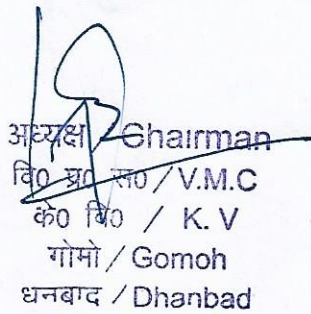 अध्यक्ष / Chairman
वि0 प्र0 स0 / V.M.C
के0 वि0 / K. V
गोमो / Gomoh
धनबाद / Dhanbad